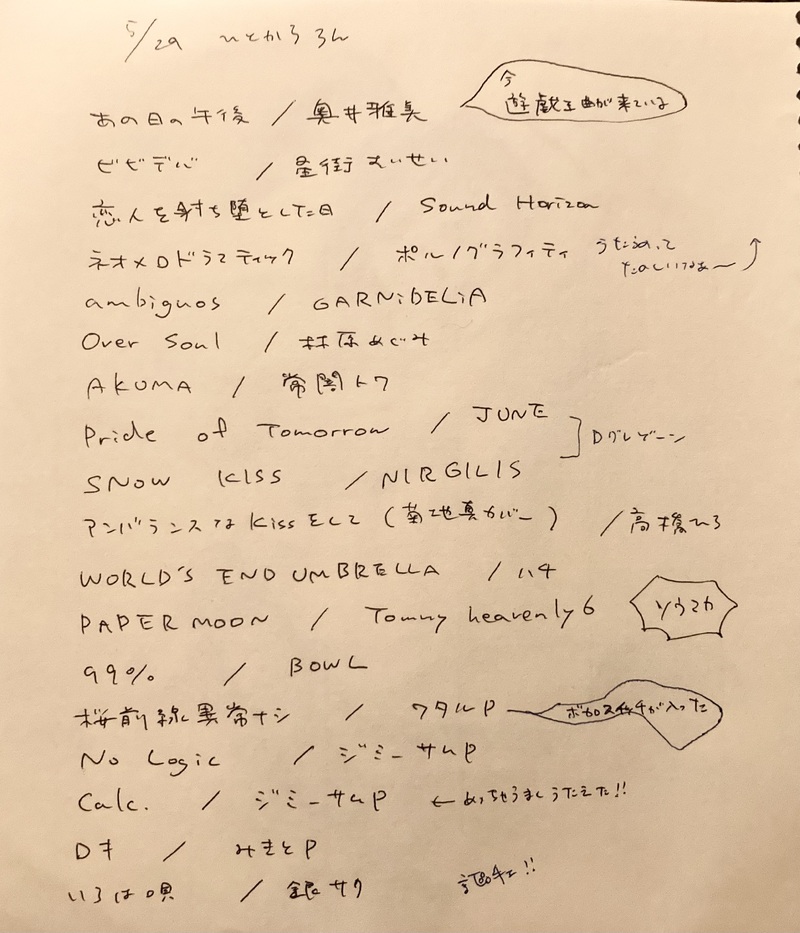 5/29 ひとかろろん
今
遊戯王曲が来ている
あの日の午後 / 奥井雅美
ビビデバ / 星街すいせい
恋人を射ち堕とした日 / Sound Horizon
ネオメロドラマティック / ポルノグラフィティ
うたうのって
たのしいなぁ〜
ambiguos / GARNiDELiA
Over Soul / 林原めぐみ
AKUMA / 常闇トワ
Pride of Tomorrow / JUNE
Dグレゾーン
SNOW KISS / NIRGILIS
アンバランスなKissをして (菊地真カバー) / 高橋ひろ
WORLD'S END UMBRELLA / ハチ
PAPER MOON / Tommy heavenly6
ソウマカ
99% / BOWL
桜前線異常ナシ / ワタルP
ボカロスイッチが入った
No Logic / ジミーサムP
Calc. / ジミーサムP ← めっちゃうまくうたえた!!
Dキ / みきとP
いろは唄 / 銀サク